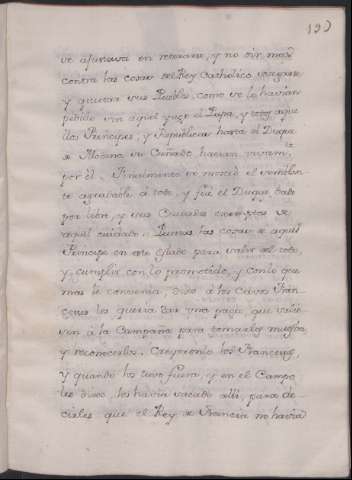 193
se apartava en retirarse, y no oir mas
contra las cosas del Rey Catholico sosegarse
y quietar sus Pueblos, como se lo havian
pedido con aquel yugo el Papa, y todos aque
llos Principes, y Republicas hasta el Duque
de Modena su Cuñado hacian
por èl. Finalmente se mostrò el semblan-
te agradable à todo, y fue el Duque dado
por libre, y sus Ciudades exemptas de
aquel cuidado. Puestas las cosas de aquel
Principe en este estado para valer del todo,
y cumplir con lo prometido, y con lo que
mas le convenia, dixo à los Cavos Fran-
ceses les queria dar una paga, que salie-
sen à la Campaña para tomarles muestra
y reconocerlos. Creyeronlo los Franceses,
y quando los tuvo fuera, y en el Campo
les dixo, los havia sacado alli, para de-
cirles que el Rey de Francia no havia